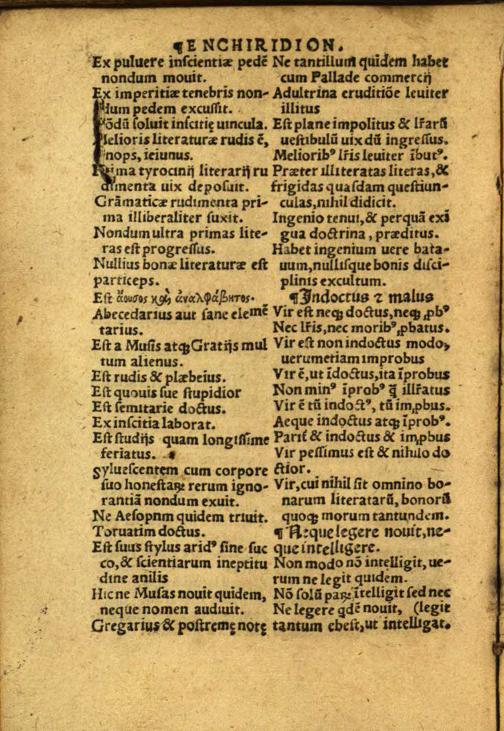 ¶ENCHIRIDION.
Ex puluere inscientiæ pedē
nondum mouit.
Ex imperitiæ tenebris non-
dum pedem excussit.
Nōdū soluit inscitię uincula.
Melioris literaturæ rudis ē,
inops, ieiunus.
Prima tyrocinij literarij ru
dimenta uix deposuit.
Grāmaticæ rudimenta pri-
ma illiberaliter suxit.
Nondum ultra primas lite-
ras est progressus.
Nullius bonæ literaturæ est
particeps.
Est ἄμουσος καὶ ἀναλφάβητος.
Abecedarius aut sane elemē
tarius.
Est a Musis atq; Gratijs mul
tum alienus.
Est rudis & plæbeius.
Est quouis sue stupidior
Est semitarie doctus.
Ex inscitia laborat.
Est studijs quam longissime
feriatus.
Syluescentem cum corpore
suo honestarꝫ rerum igno-
rantiā nondum exuit.
Ne Aesopum quidem triuit.
Toruatim doctus.
Est suus stylus aridꝰ sine suc
co, & scientiarum ineptitu
dine anilis
Hic ne Musas nouit quidem,
neque nomen audiuit.
Gregarius & postremę notę
Ne tantillum quidem habet
cum Pallade commercij
Adultrina eruditiōe leuiter
illitus
Est plane impolitus & lr̄arū
uestibulū uix dū ingressus.
Melioribꝰ lr̄is leuiter ībutꝰ.
Præter illiteratas literas, &
frigidas quasdam questiun-
culas, nihil didicit.
Ingenio tenui, & perquā exi
gua doctrina, præditus.
Habet ingenium uere bata-
uum, nullisque bonis disci-
plinis excultum.
¶Indoctus ⁊ malus
Vir est neq; doctus, neq; ꝓbꝰ
Nec lr̄is, nec moribꝰ ꝓbatus.
Vir est non indoctus modo,
uerumetiam improbus
Vir ē, ut īdoctus, ita īprobus
Non minꝰ īprobꝰ q̄ illr̄atus
Vir ē tū indoctꝰ, tū imꝓbus.
Aeque indoctus atq; īprobꝰ.
Parit̄ & indoctus & imꝓbus
Vir pessimus est & nihilo do
ctior.
Vir, cui nihil sit omnino bo-
narum literatarū, bonorū
quoq; morum tantundem.
¶Neque legere nouit, ne-
que intelligere.
Non modo nō intelligit, ue-
rum ne legit quidem.
Nō solū parꝫ ītelligit sed nec
Ne legere qdē nouit, (legit
tantum abest, ut intelligat.